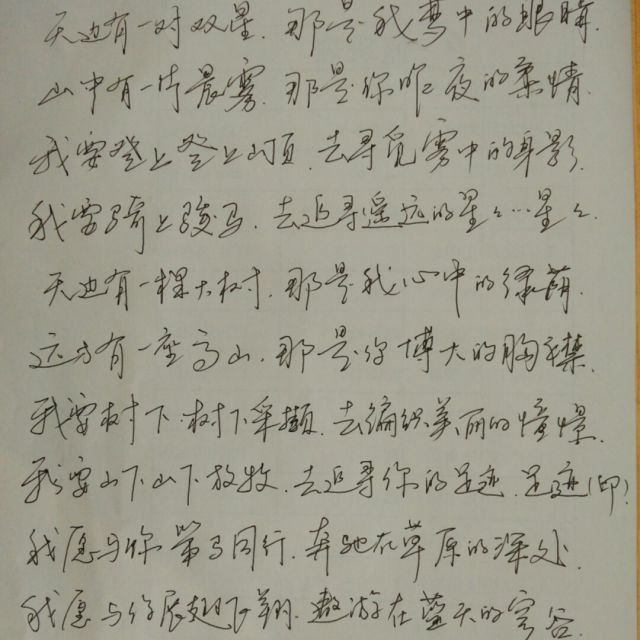 天边有一对双星.那是我梦中的眼睛.
山中有一片晨雾.那是你昨夜的柔情.
我要登上登上山顶.去寻觅雾中的身影.
我要骑上骏马.去追寻遥远的星星…星星.
天边有一棵大树.那是我心中的绿荫.
远方有一座高山.那是你博大的胸襟.
我要树下树下采撷.去编织美丽的憧憬.
我要山下山下放牧.去追寻你的足迹.足迹(印?
我愿与你策马同行.奔驰在草原的深处.
我愿与你展翅飞翔.遨游在蓝天的穹谷.